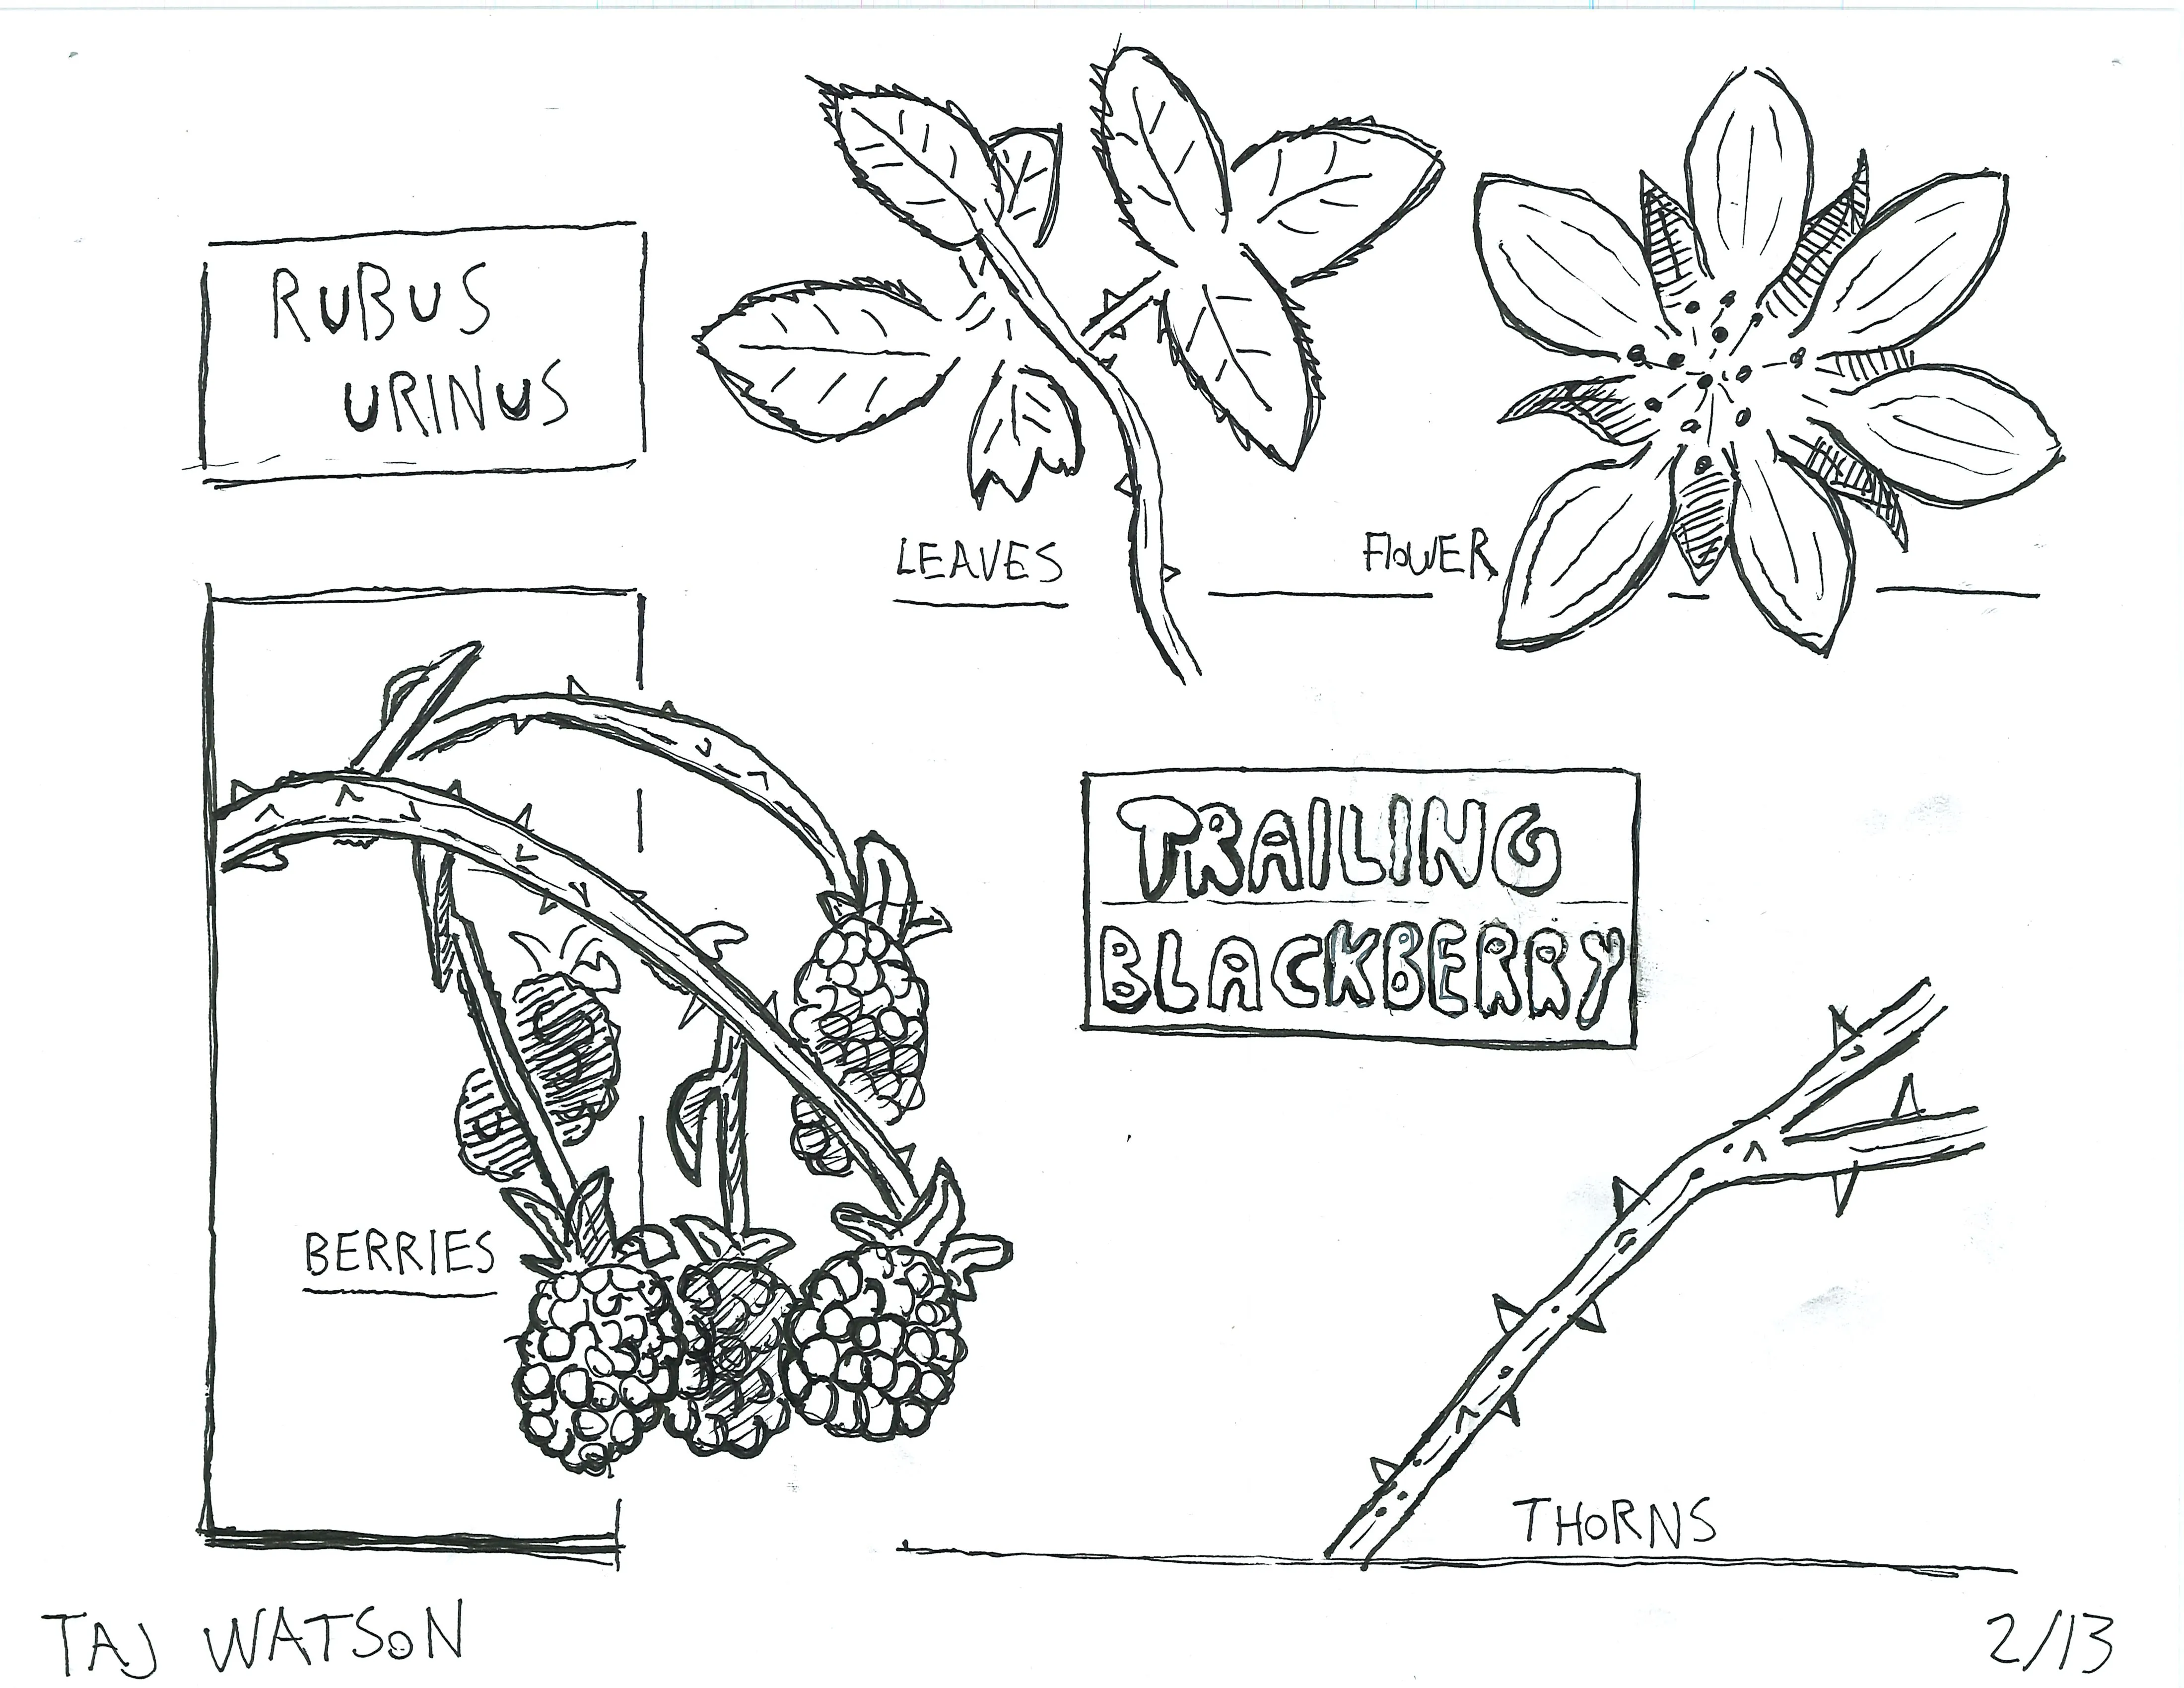 RUBUS
URINUS
LEAVES
FLOWER
TRAILING
BLACKBERRY
BERRIES
THORNS
TAJ WATSON
2/13